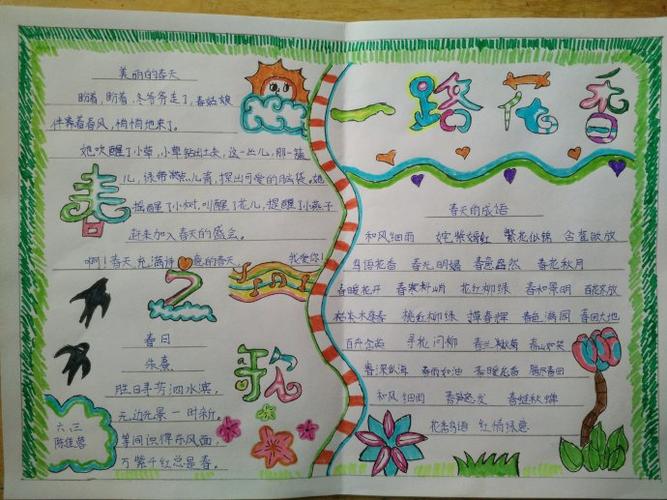 美丽的春天
盼着，盼着，冬爷爷走了，春姑娘
伴着春风，悄悄地来了。
她吹醒了小草，小草钻出土来，这一丛儿，那一
儿，
探出可爱的脑袋。她
摇醒了小树，叫醒了花儿，捉醒了小燕子
赶来加入春天的盛会。
啊！春天，充满诗意的春天
我爱你！
春
之
歌
春日
朱熹
胜日寻芳泗水滨，
无边光景一时新。
等闲识得东风面，
万紫千红总是春。
六、三
一路花香
春天的成语
和风细雨 姹紫嫣红 繁花似锦 含苞欲放
鸟语花香 春光明媚 春意盎然 春花秋月
春暖花开 春寒料峭 花红柳绿 春和景明 百花齐放
枯木逢春 桃红柳绿 春色满园 春回大地
百卉含英 寻花问柳 春兰秋菊 春山如笑
春深似海 春雨如油 春暖花香
和风细雨 春蛙秋蝉
花香鸟语 红情绿意